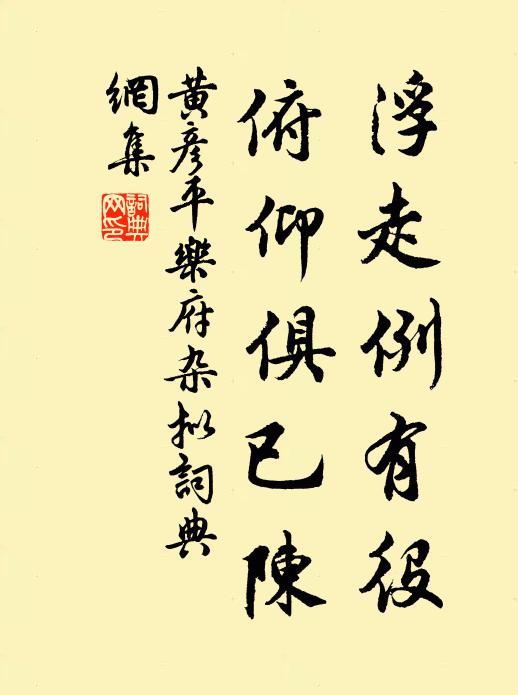 浮走例有役
俯仰俱已陳
黄彦平樂府杂拟詞典
網集
詞典
网印